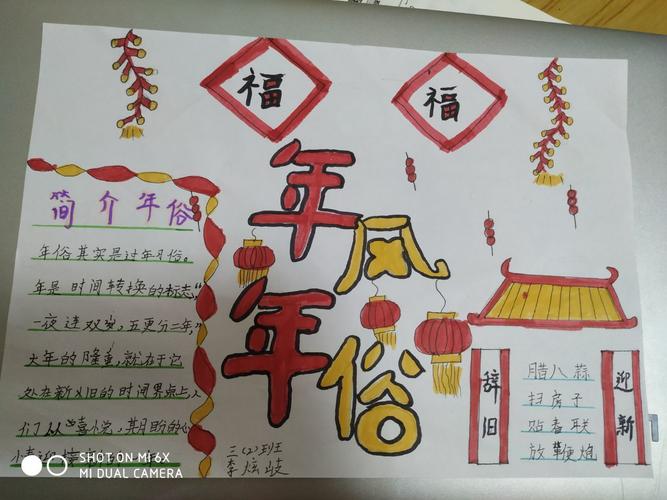 福
福
年风
年俗
简介年俗
年俗其实是过年习俗。
年是时间转换的标志,"
一夜连双岁,五更分二年,"
大年的隆重,就在于它
处在新义旧的时间界点上,
们从
三(2)班
李炫歧
辞旧
腊八蒜
扫房子
贴春联
放鞭炮
迎新
SHOT ON MI 6X
MI DUAL CAMERA